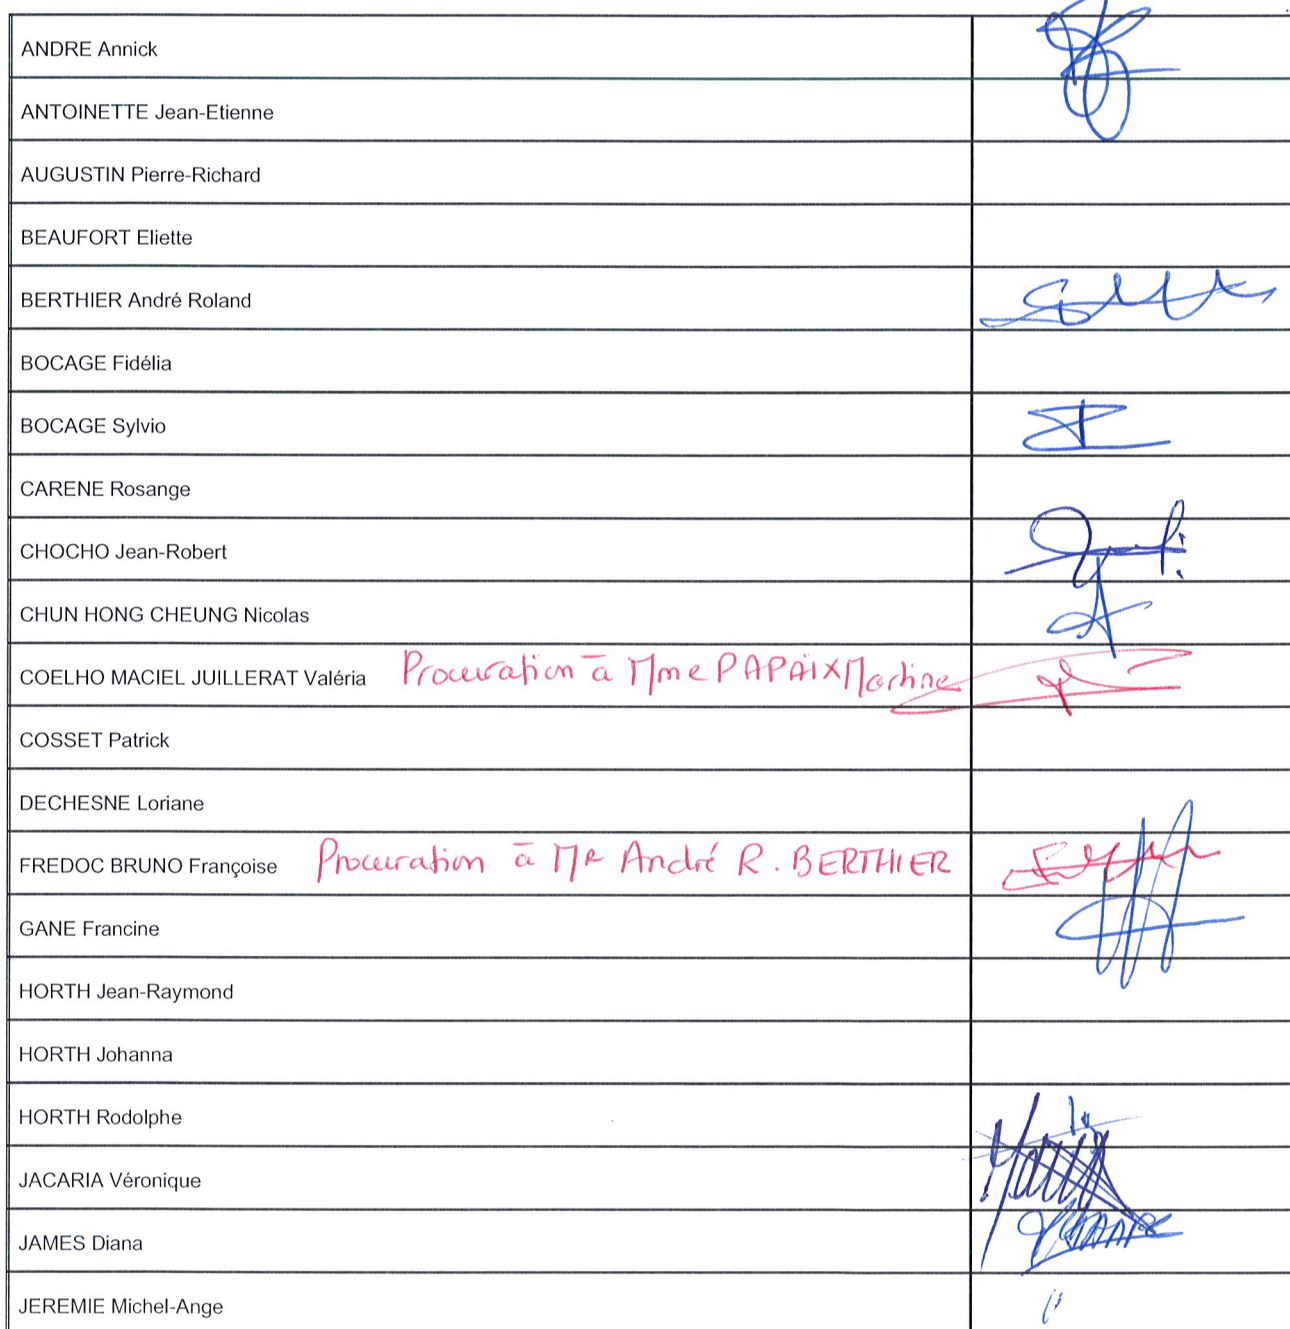 ANDRE Annick
ANTOINETTE Jean-Etienne
AUGUSTIN Pierre-Richard
BEAUFORT Eliette
BERTHIER André Roland
BOCAGE Fidélia
BOCAGE Sylvio
CARENE Rosange
CHOCHO Jean-Robert
CHUN HONG CHEUNG Nicolas
COELHO MACIEL JUILLERAT Valéria Procuration à Mme PAPAIX Martine
COSSET Patrick
DECHESNE Loriane
FREDOC BRUNO Françoise Procuration à Mr André R. BERTHIER
GANE Francine
HORTH Jean-Raymond
HORTH Johanna
HORTH Rodolphe
JACARIA Véronique
JAMES Diana
JEREMIE Michel-Ange